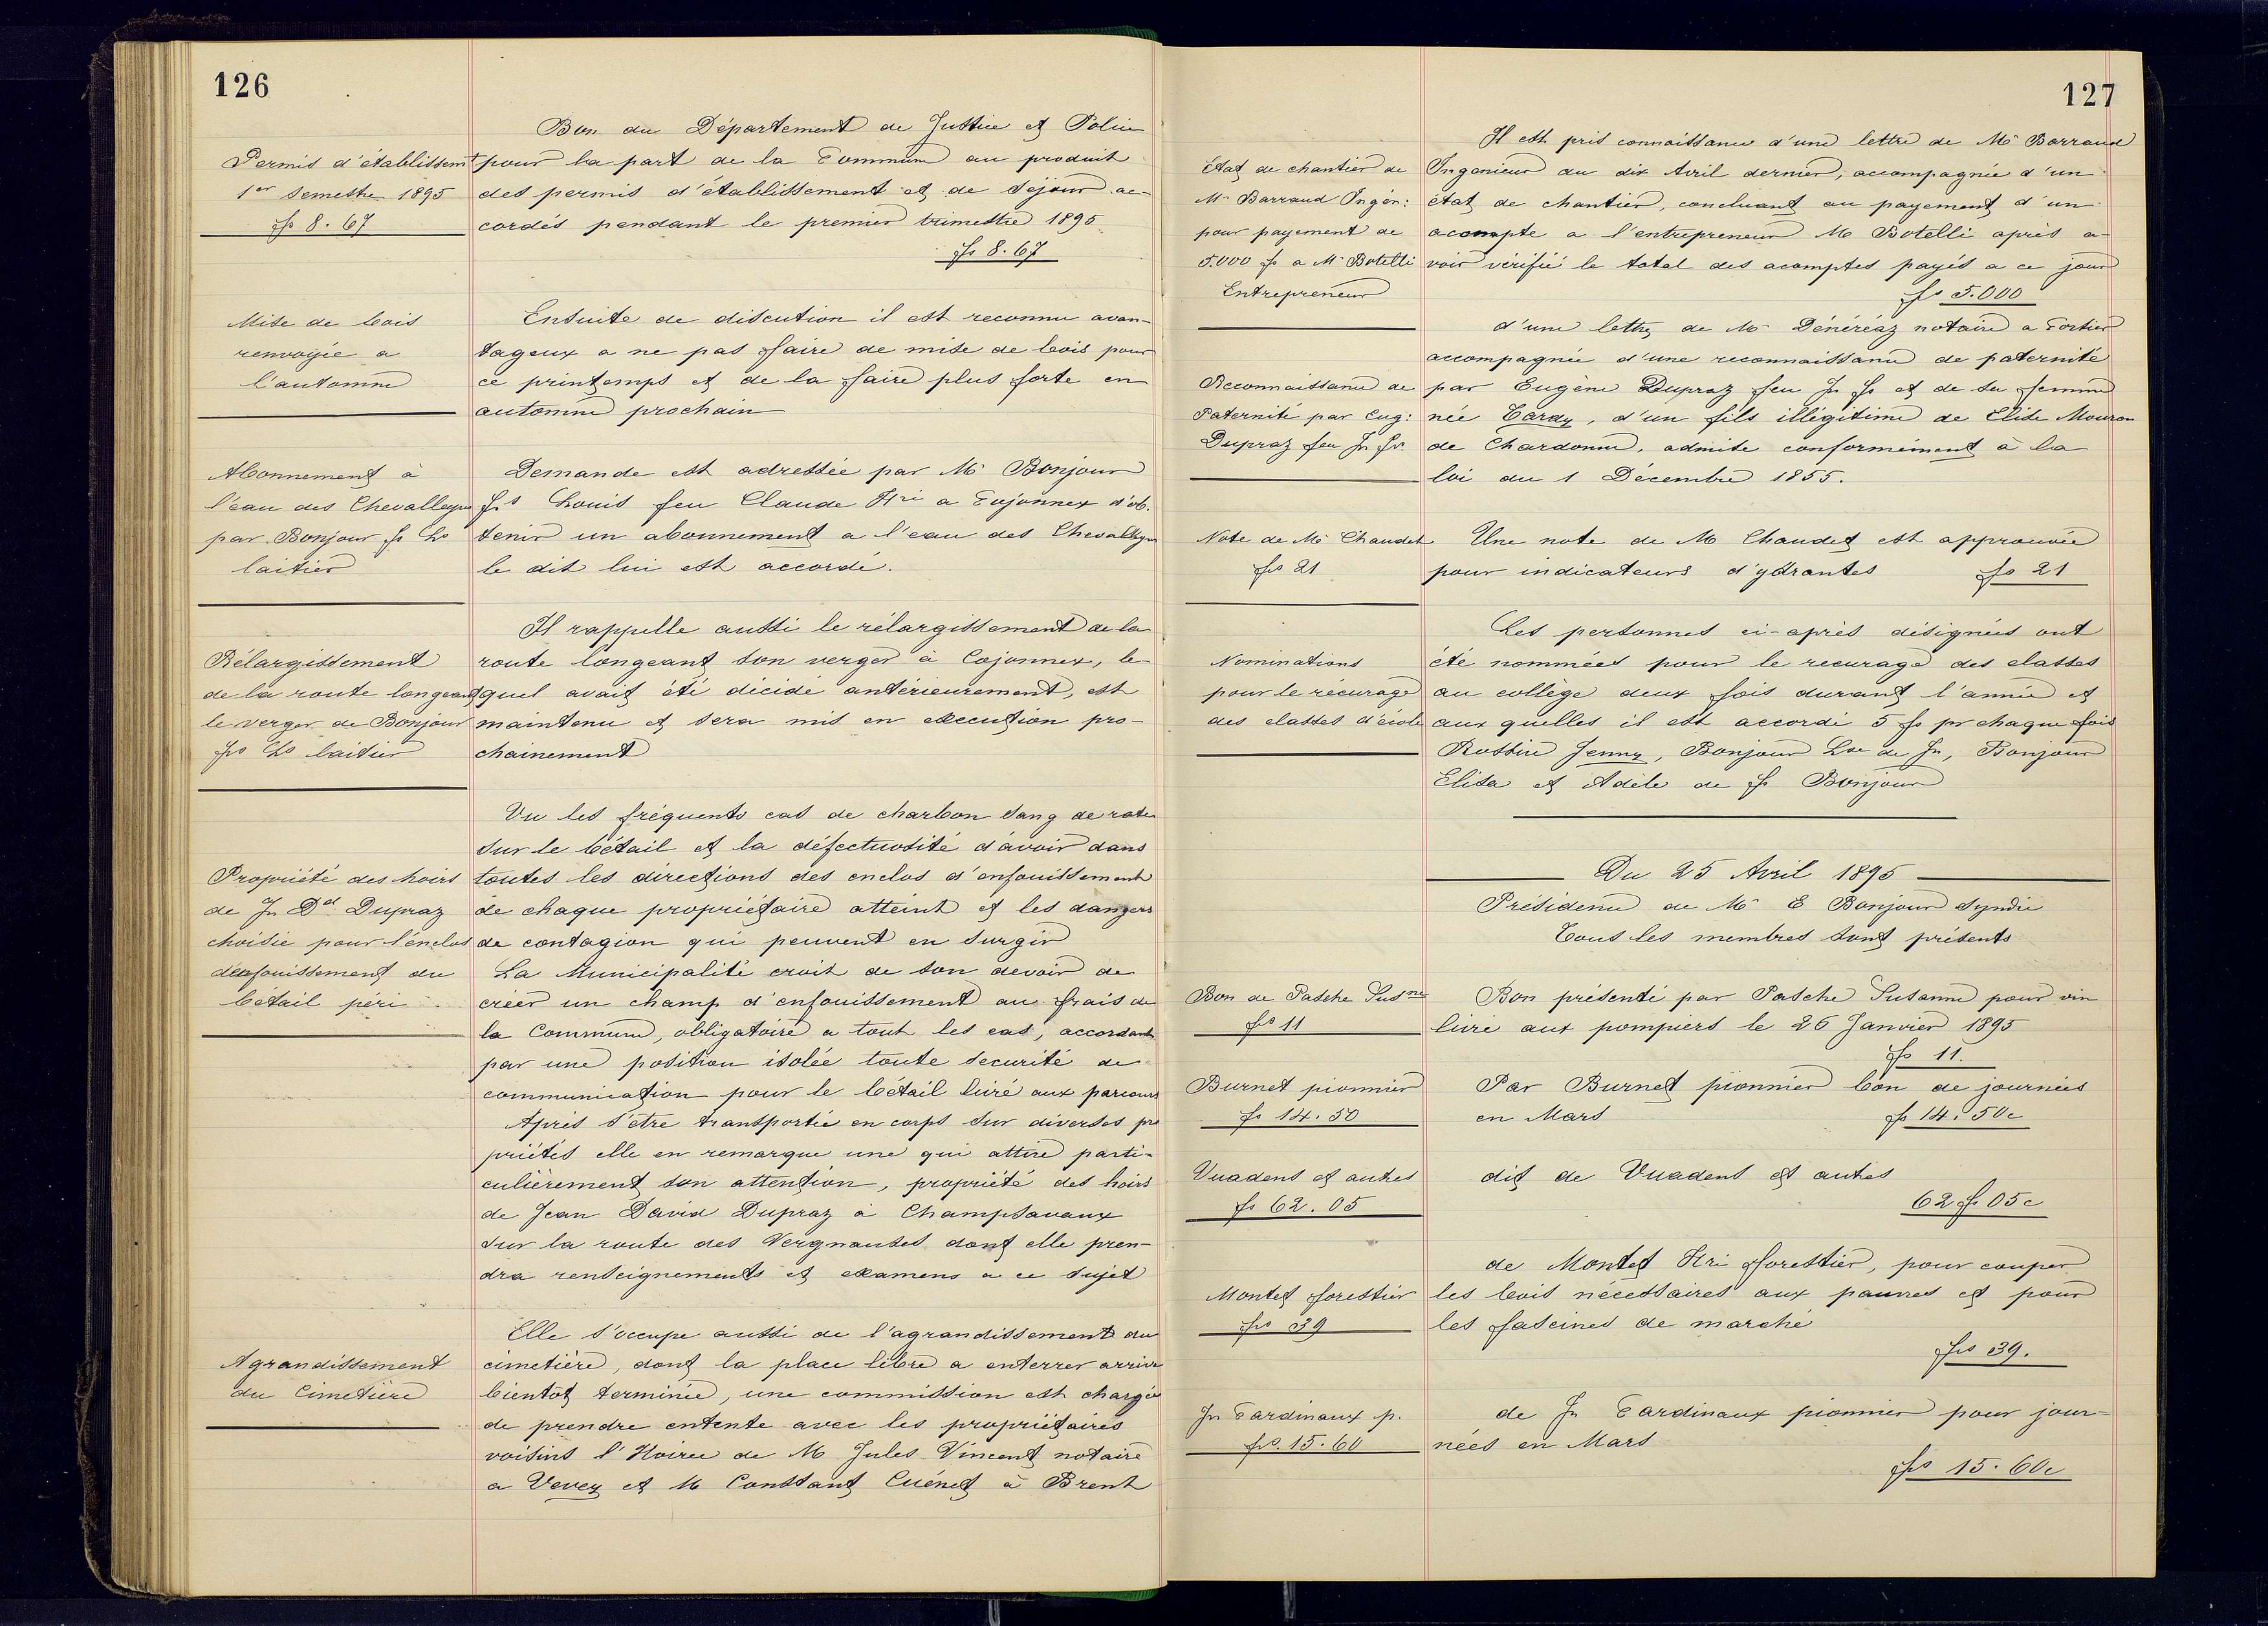 126
Bon du Département de Justice et Police
Permis d'établissemt
pour la part de la Commune au produit
1er semestre 1895
des permis d'établissement et de séjour ac-
fs 8.67
cordés pendant le premier trimestre 1895
fs 8.67
Mise de bois
renvoyée a
l'automne
Ensuite de discution il est reconnu avan-
tageux a ne pas faire de mise de bois pour
ce printemps et de la faire plus forte en
automne prochain
Abonnement à
l'eau des Chevalleyres
par Bonjour fs Ls
laitier
Demande est adressée par Mr Bonjour
fs Louis feu Claude Hri a Cojonnex d'ob-
tenir un abonnement a l'eau des Chevalleyres
le dit lui est accordé.
Rélargissement
de la route longeant
le verger de Bonjour
fs Ls laitier
Il rappelle aussi le rélargissement de la
route longeant son verger à Cojonnex, le-
quel avait été décidé antérieurement, est
maintenu et sera mis en execution pro-
chainement
Propriété des hoirs
de Jn Dd Dupraz
choisie pour l'enclos
d'enfouissement du
bétail péri
Vu les fréquents cas de charbon sang de rate
sur le bétail et la défectuosité d'avoir dans
toutes les directions des enclos d'enfouissement
de chaque propriétaire atteint et les dangers
de contagion qui peuvent en surgir
La Municipalité croit de son devoir de
créer un champ d'enfouissement au frais de
la Commune, obligatoire a tout les cas, accordant
par une position isolée toute securité de
communication pour le bétail livré aux parcours
Après s'être transportée en corps sur diverses pro
priétés elle en remarque une qui attire parti-
culièrement son attention, propriété des hoirs
de Jean David Dupraz à Champsavaux
sur la route des Vergnauses dont elle pren-
dra renseignements et examens a ce sujet
Agrandissement
du Cimetière
Elle s'occupe aussi de l'agrandissement du
cimetière, dont la place libre a enterrer arrive
bientôt terminée, une commission est chargée
de prendre entente avec les propriétaires
voisins l'Hoirie de M Jules Vincent notaire
a Vevey et M Constant Cuénet à Brent
127
Etat de chantier de
Mr Barraud Ingén:
pour payement de
5.000 fs a Mr Botelli
Entrepreneur
Il est pris connaissance d'une lettre de Mr Barraud
Ingenieur du dix Avril dernier, accompagnée d'un
état de chantier, concluant au payement d'un
acompte a l'entrepreneur M Botelli après a-
voir vérifié le total des acomptes payés a ce jour
fs 5.000
Reconnaissance de
Paternité par Eug:
Dupraz feu Jn fs
d'une lettre de Mr Dénéréaz notaire a Corsier
accompagnée d'une reconnaissance de paternité
par Eugène Dupraz feu Jn fs et de sa femme
née Cardy, d'un fils illégitime de Elise Mouron
de Chardonne, admise conformément à la
loi du 1 Décembre 1855.
Note de Mr Chaudet
fs 21
Une note de M Chaudet est approuvée
pour indicateurs d'ydrantes fs 21
Nominations
pour le récurage
des classes d'école
Les personnes ci-après désignées ont
été nommées pour le recurage des classes
au collège deux fois durant l'année et
aux quelles il est accordé 5 fs pr chaque fois
Rossire Jenny, Bonjour Lse de Jn, Bonjour
Elisa et Adèle de fs Bonjour
Du 25 Avril 1895
Présidence de Mr E Bonjour Syndic
Tous les membres sont présents
Bon de Pasche Susne
fs 11
Bon présenté par Pasche Susanne pour vin
livré aux pompiers le 26 Janvier 1895
fs 11.
Burnet pionnier
fs 14.50
Par Burnet pionnier bon de journées
en Mars fs 14.50c
Vuadens et autres
fs 62.05
dit de Vuadens et autres
62 fs 05c
Montet forestier
fs 39
de Montet Hri forestier, pour couper
les bois nécessaires aux pauvres et pour
les fascines de marché
frs 39.
Jn Cardinaux p.
fs. 15.60
de Jn Cardinaux pionnier pour jour-
nées en Mars
fs 15.60c